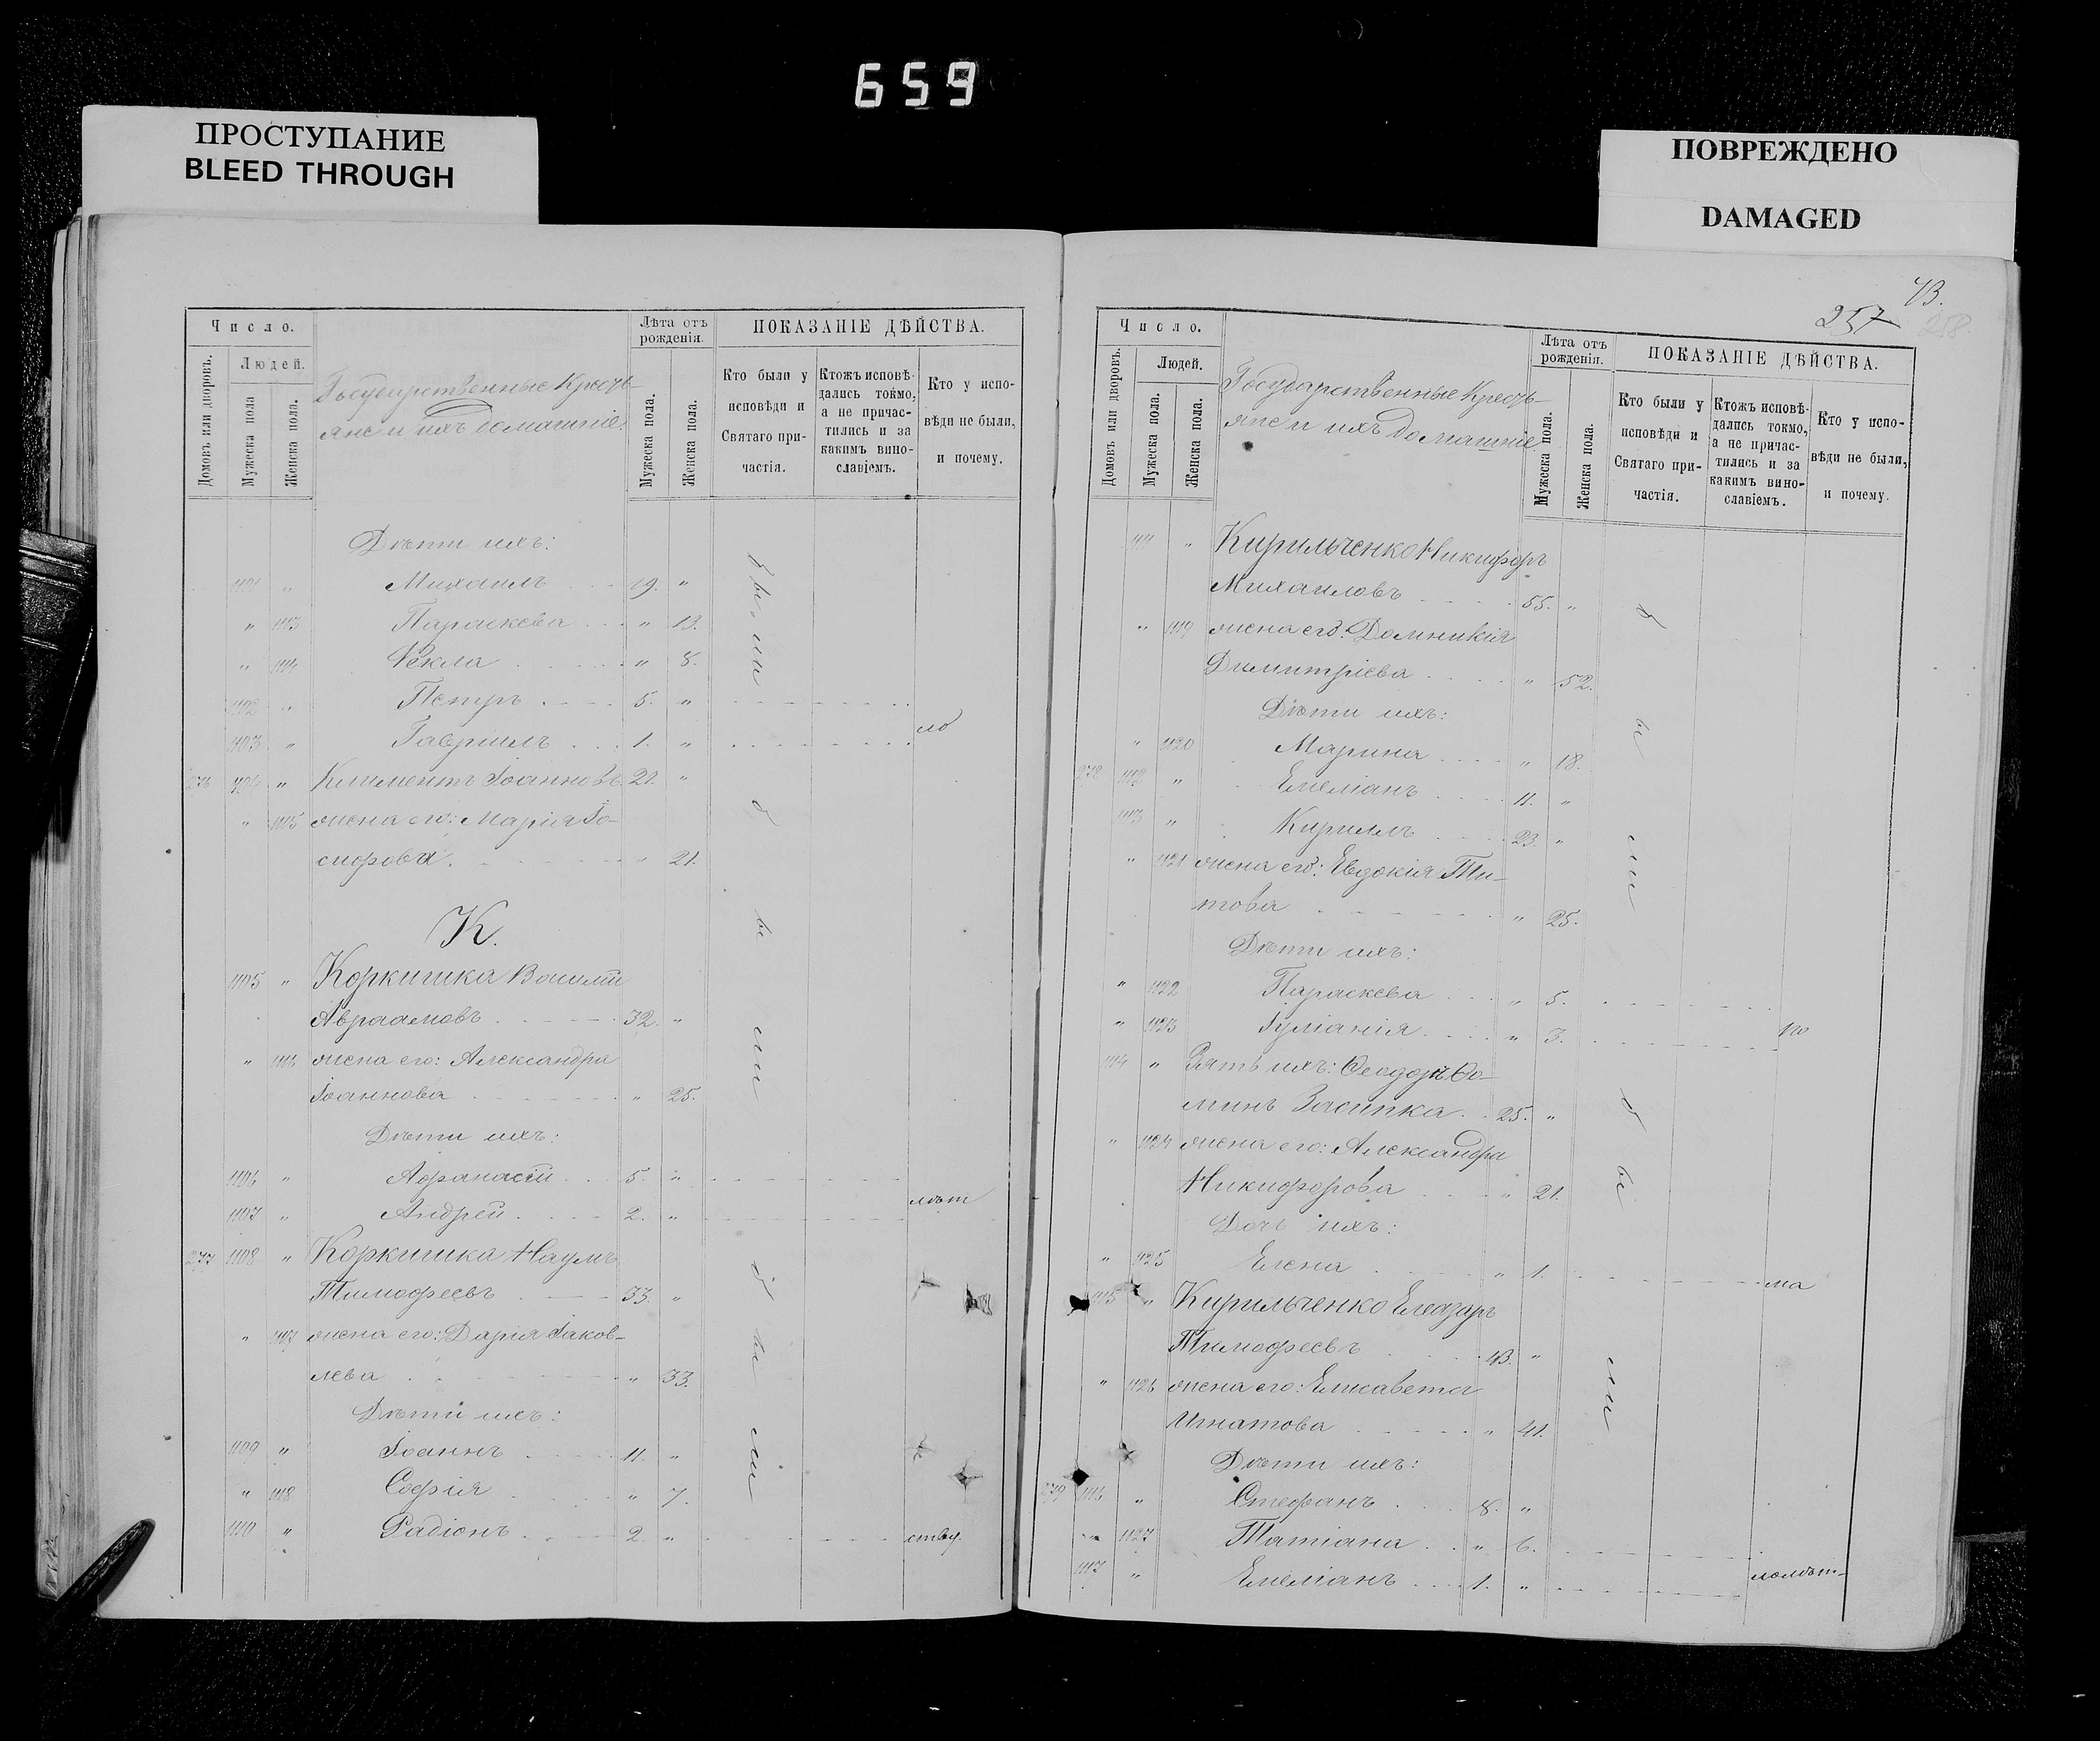 659
ПРОСТУПАНИЕ
BLEED THROUGH
ПОВРЕЖДЕНО
DAMAGED
Число.
Домовъ или дворовъ.
Людей.
Мужеска пола
Женска пола.
Государственные Кресть-
яне и ихъ домашніе.
Лѣта отъ рожденія.
Мужеска пола.
Женска пола.
ПОКАЗАНІЕ ДѢЙСТВА.
Кто были у исповѣди и Святаго при-частія.
Ктожъ исповѣ-дались токмо, а не причас-тились и за какимъ вино-славіемъ.
Кто у испо-вѣди не были, и почему.
Дѣти ихъ:
1101 " Михаилъ 19. "
" 1113 Параскева " 13.
" 1114 Ѳекла " 8.
1102 " Петръ 5. "
1103 " Гавріилъ 1. " мо
276 1104 " Климентъ Іоанновъ 21. "
" 1115 жена его: Марія Іо-
сифова " 21.
К.
1105 " Коркишка Василій
Авраамовъ 32. "
" 1116 жена его: Александра
Іоаннова " 25.
Дѣти ихъ:
1106 " Афанасій 5. "
1107 " Андрей 2. " лѣт
277 1108 " Коркишка Наумъ
Тимофеевъ 33. "
" 1117 жена его: Дарія Іаков-
лева " 33.
Дѣти ихъ:
1109 " Іоаннъ 11. "
" 1118 Софія " 7.
1110 " Радіонъ 2. " ству.
б ы ли
б ы ли
б ы ли
43.
257
258
Число.
Домовъ или дворовъ.
Людей.
Мужеска пола.
Женска пола.
Государственные Кресть-
яне и ихъ домашніе.
Лѣта отъ рожденія.
Мужеска пола.
Женска пола.
ПОКАЗАНІЕ ДѢЙСТВА.
Кто были у исповѣди и Святаго при-частія.
Ктожъ исповѣ-дались токмо, а не причас-тились и за какимъ вино-славіемъ.
Кто у испо-вѣди не были, и почему.
1111 " Кирильченко Никифоръ
Михаиловъ 55. "
" 1119 жена его: Домникія
Димитріева " 52.
Дѣти ихъ:
" 1120 Марина " 18.
278 1112 " Емеліанъ 11. "
1113 " Кириллъ 23. "
" 1121 жена его: Евдокія Ти-
това " 25.
Дѣти ихъ:
" 1122 Параскева " 5.
" 1123 Іуліанія " 3. по
1114 " Зять ихъ: Ѳеодоръ Ѳо-
минъ Засипка 25. "
" 1124 жена его: Александра
Никифорова " 21.
Дочь ихъ:
" 1125 Елена " 1. ма
1115 " Кирильченко Елеазаръ
Тимофеевъ 43. "
" 1126 жена его: Елисавета
Игнатова " 41.
Дѣти ихъ:
279 1116 " Стефанъ 8. "
" 1127 Татіана " 6.
1117 " Емеліанъ 1. " лолѣт-
б ы ли
б ы ли